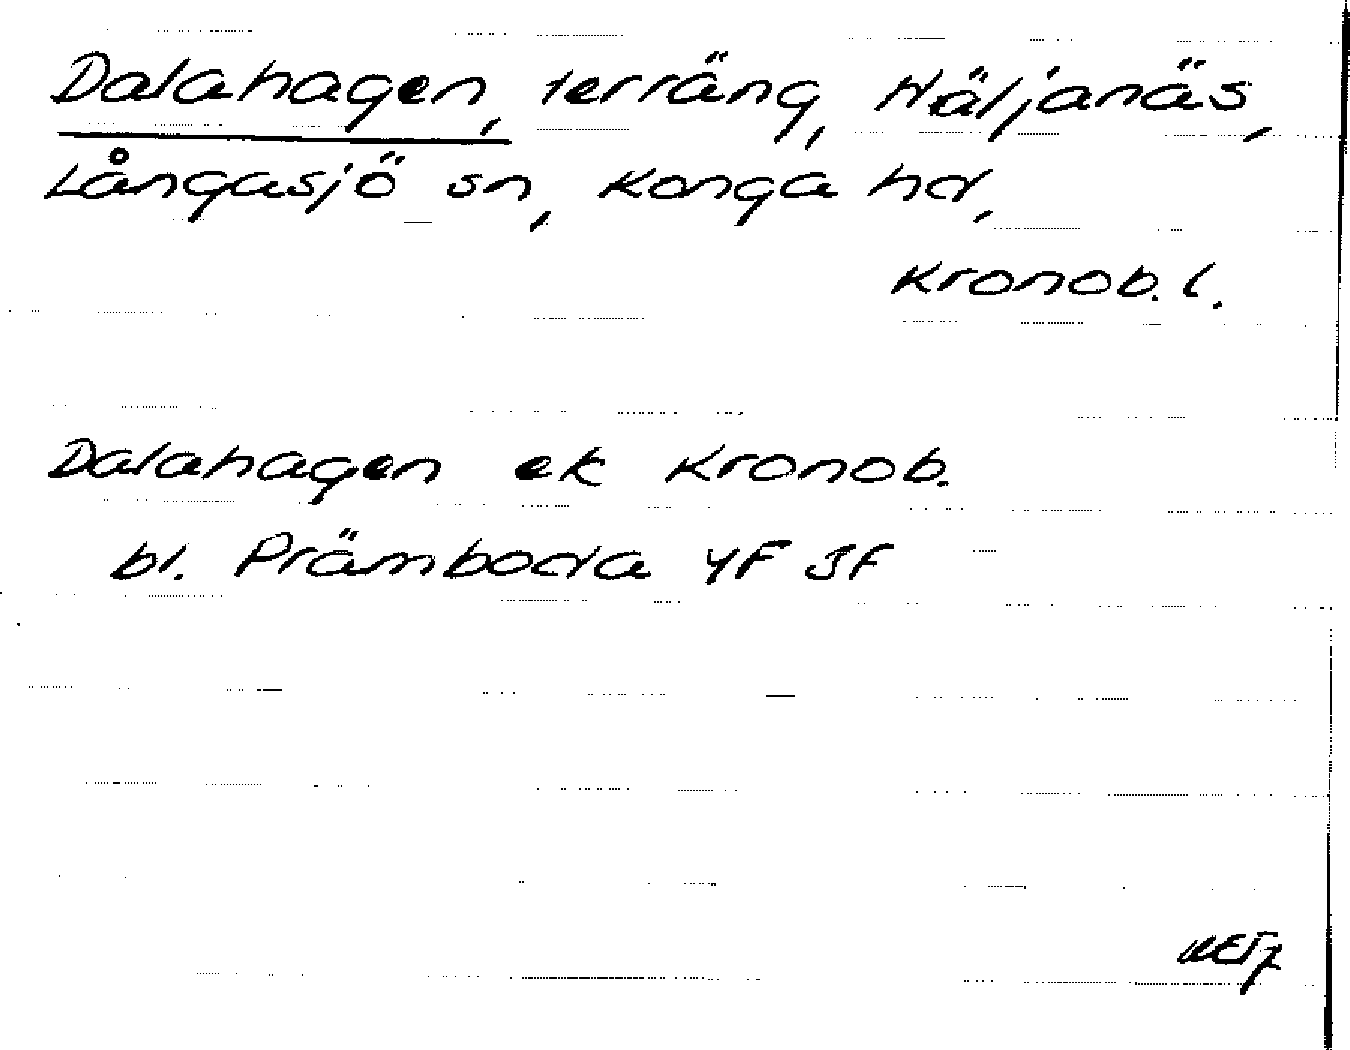 Dalahagen, terräng, Häljanäs,
Långasjö sn, Konga hd,
Kronob. l.
Dalahagen ek Kronob.
bl. Främboda 4F 3f